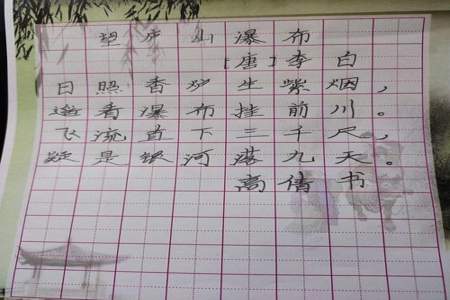 望庐山瀑布
[唐]李白
日照香炉生紫烟，
遥看瀑布挂前川。
飞流直下三千尺，
疑是银河落九天。
高倩书